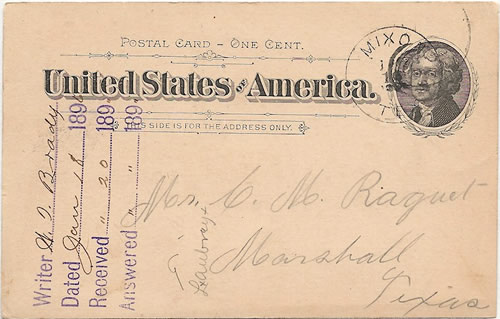 POSTAL CARD – ONE CENT.
United States of America.
THIS SIDE IS FOR THE ADDRESS ONLY.
MIXO
Mrs. C. M. Raguet
Marshall
Texas
Writer Brady
Dated Jan 18 189
Received " 20 189
Answered " " 189